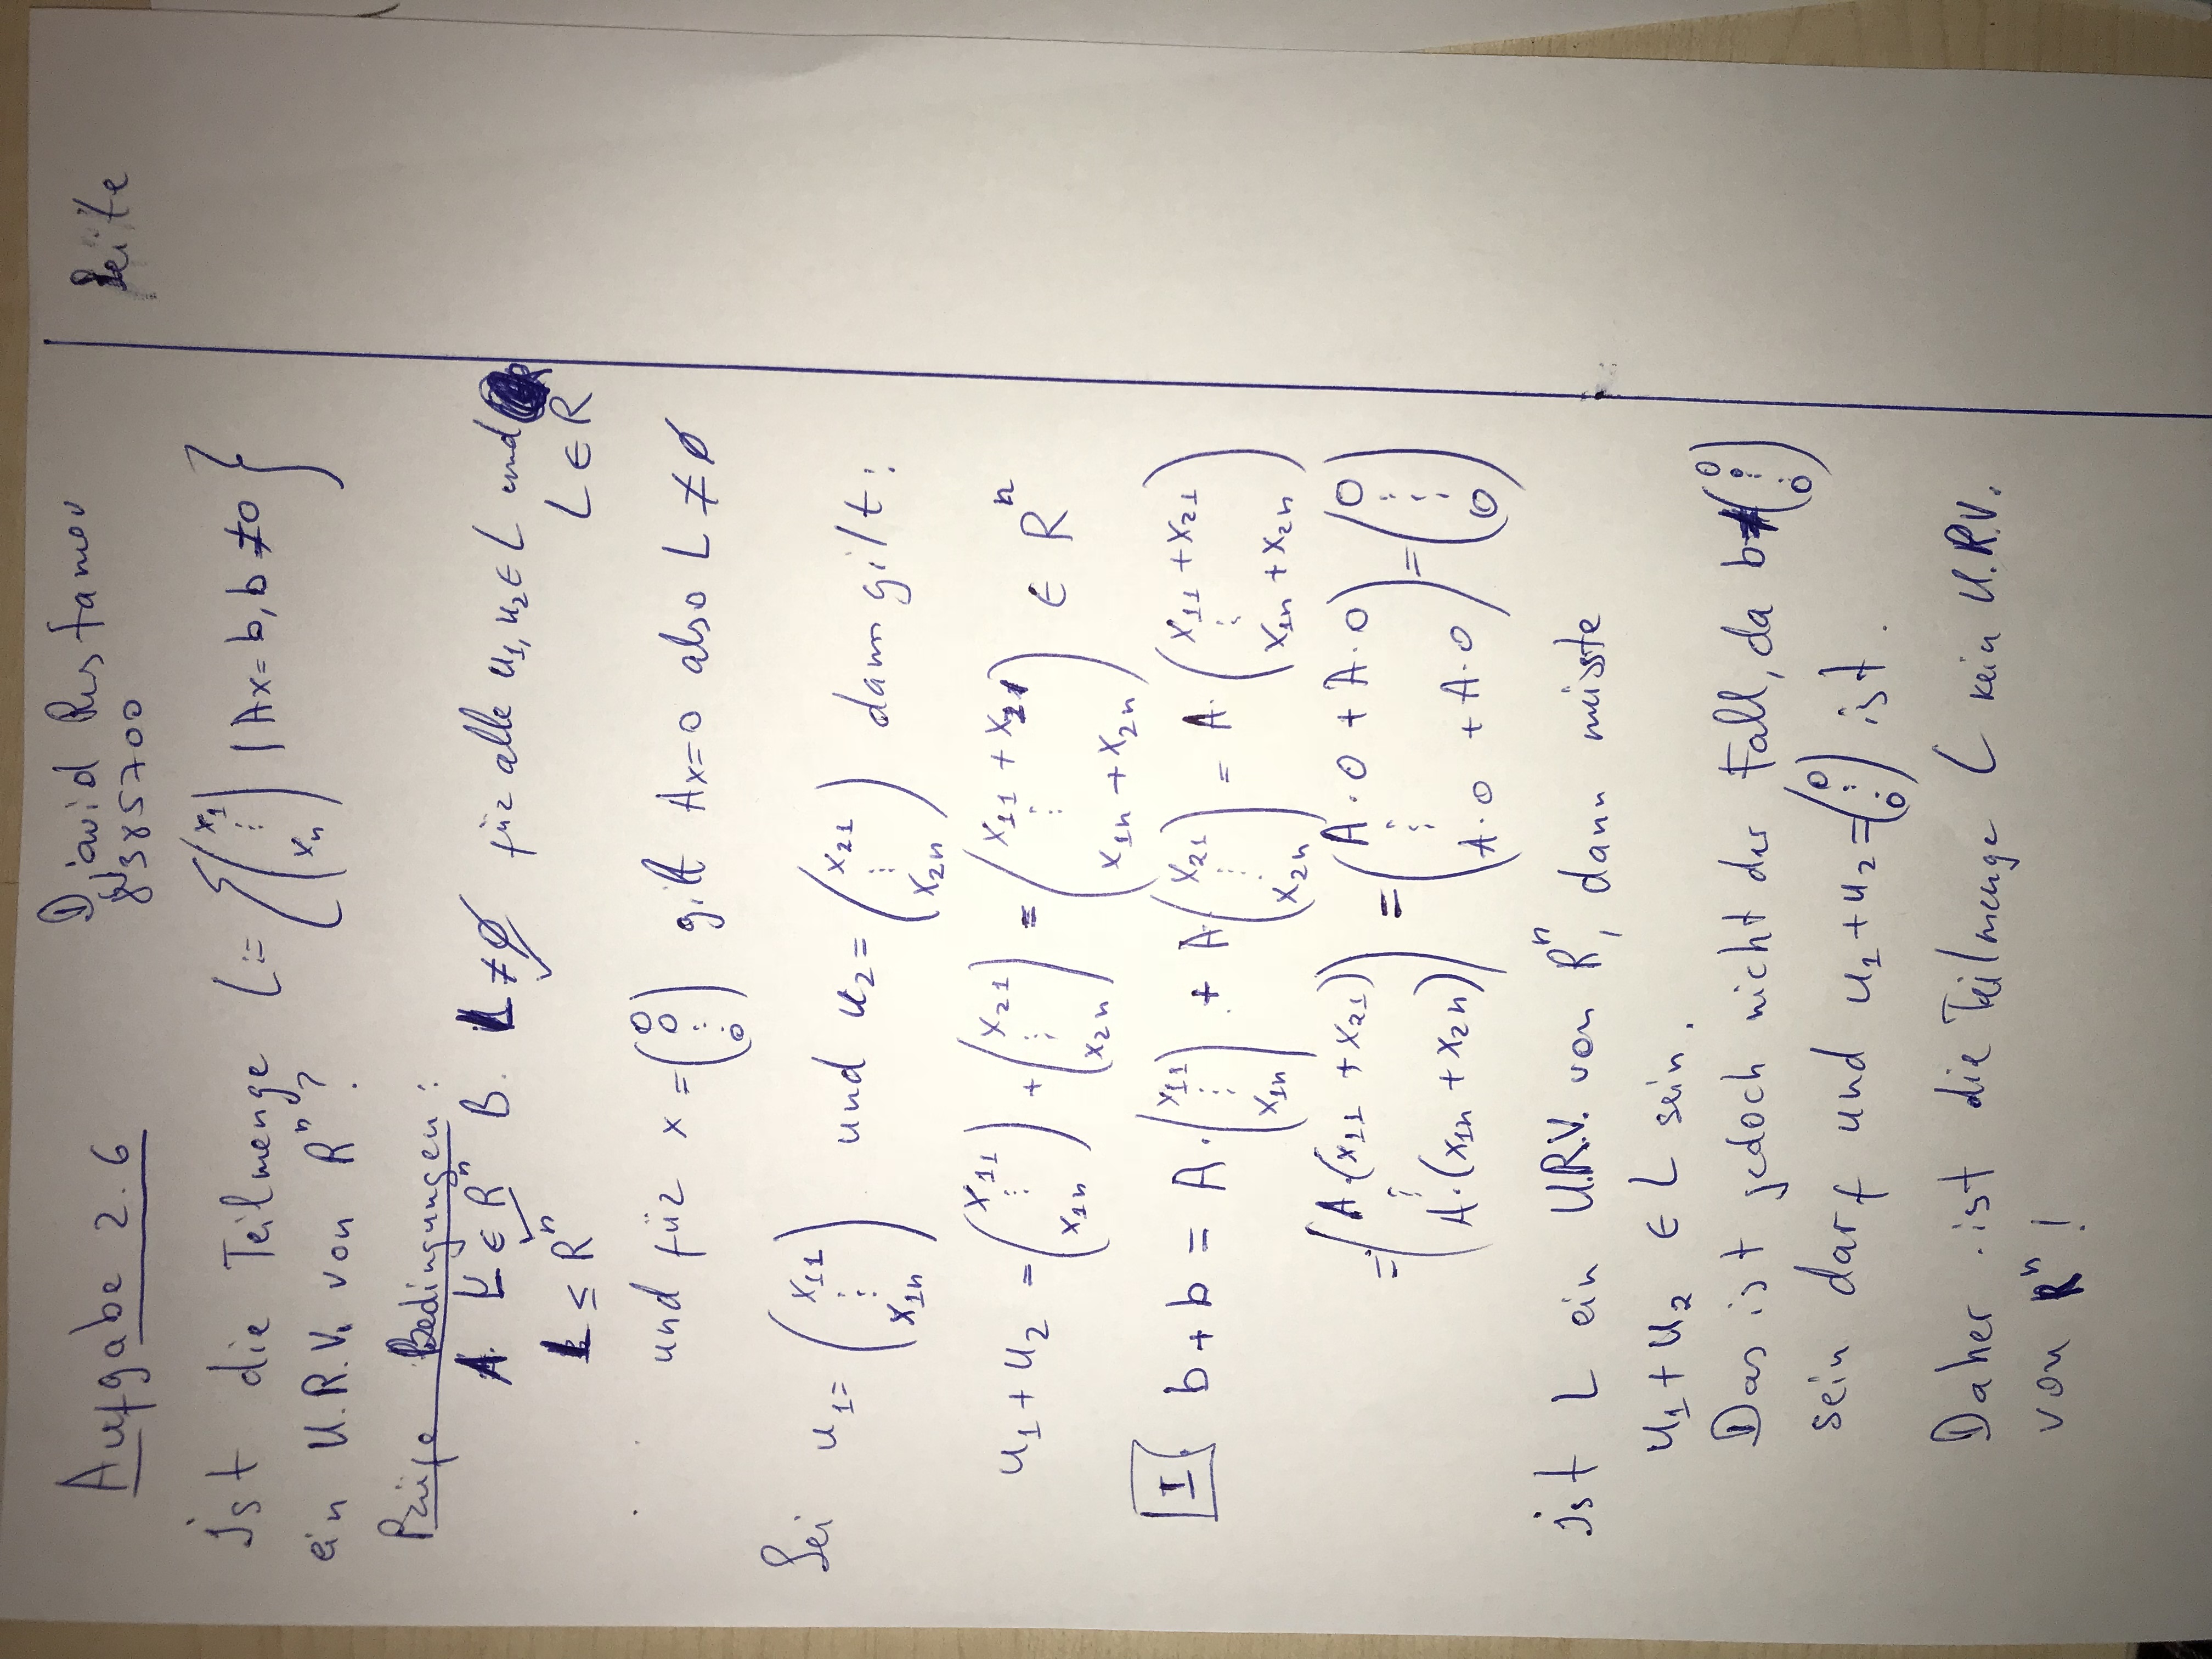 Aufgabe 2.6
Djavid Rustamov
8385700
Seite
Ist die Teilmenge L := { (x₁ ⋮ xₙ) | Ax = b, b ≠ 0 }
ein U.R.V. von Rⁿ?
Prüfe Bedingungen:
A. L ∈ Rⁿ ✓ B. L ≠ ∅ ✓ für alle u₁, u₂ ∈ L und
L ≤ Rⁿ L ∈ R
und für x = (0 0 ⋮ 0) gilt Ax = 0 also L ≠ ∅
Sei u₁ = (x₁₁ ⋮ x₁ₙ) und u₂ = (x₂₁ ⋮ x₂ₙ) dann gilt:
u₁ + u₂ = (x₁₁ ⋮ x₁ₙ) + (x₂₁ ⋮ x₂ₙ) = (x₁₁ + x₂₁ ⋮ x₁ₙ + x₂ₙ) ∈ Rⁿ
I. b + b = A · (x₁₁ ⋮ x₁ₙ) + A · (x₂₁ ⋮ x₂ₙ) = A · (x₁₁ + x₂₁ ⋮ x₁ₙ + x₂ₙ)
= (A · (x₁₁ + x₂₁) ⋮ A · (x₁ₙ + x₂ₙ)) = (A · 0 + A · 0 ⋮ A · 0 + A · 0) = (0 ⋮ 0)
Ist L ein U.R.V. von Rⁿ, dann müsste
u₁ + u₂ ∈ L sein.
Das ist jedoch nicht der Fall, da b ≠ (0 ⋮ 0)
sein darf und u₁ + u₂ = (0 ⋮ 0) ist.
Daher ist die Teilmenge L kein U.R.V.
von Rⁿ!